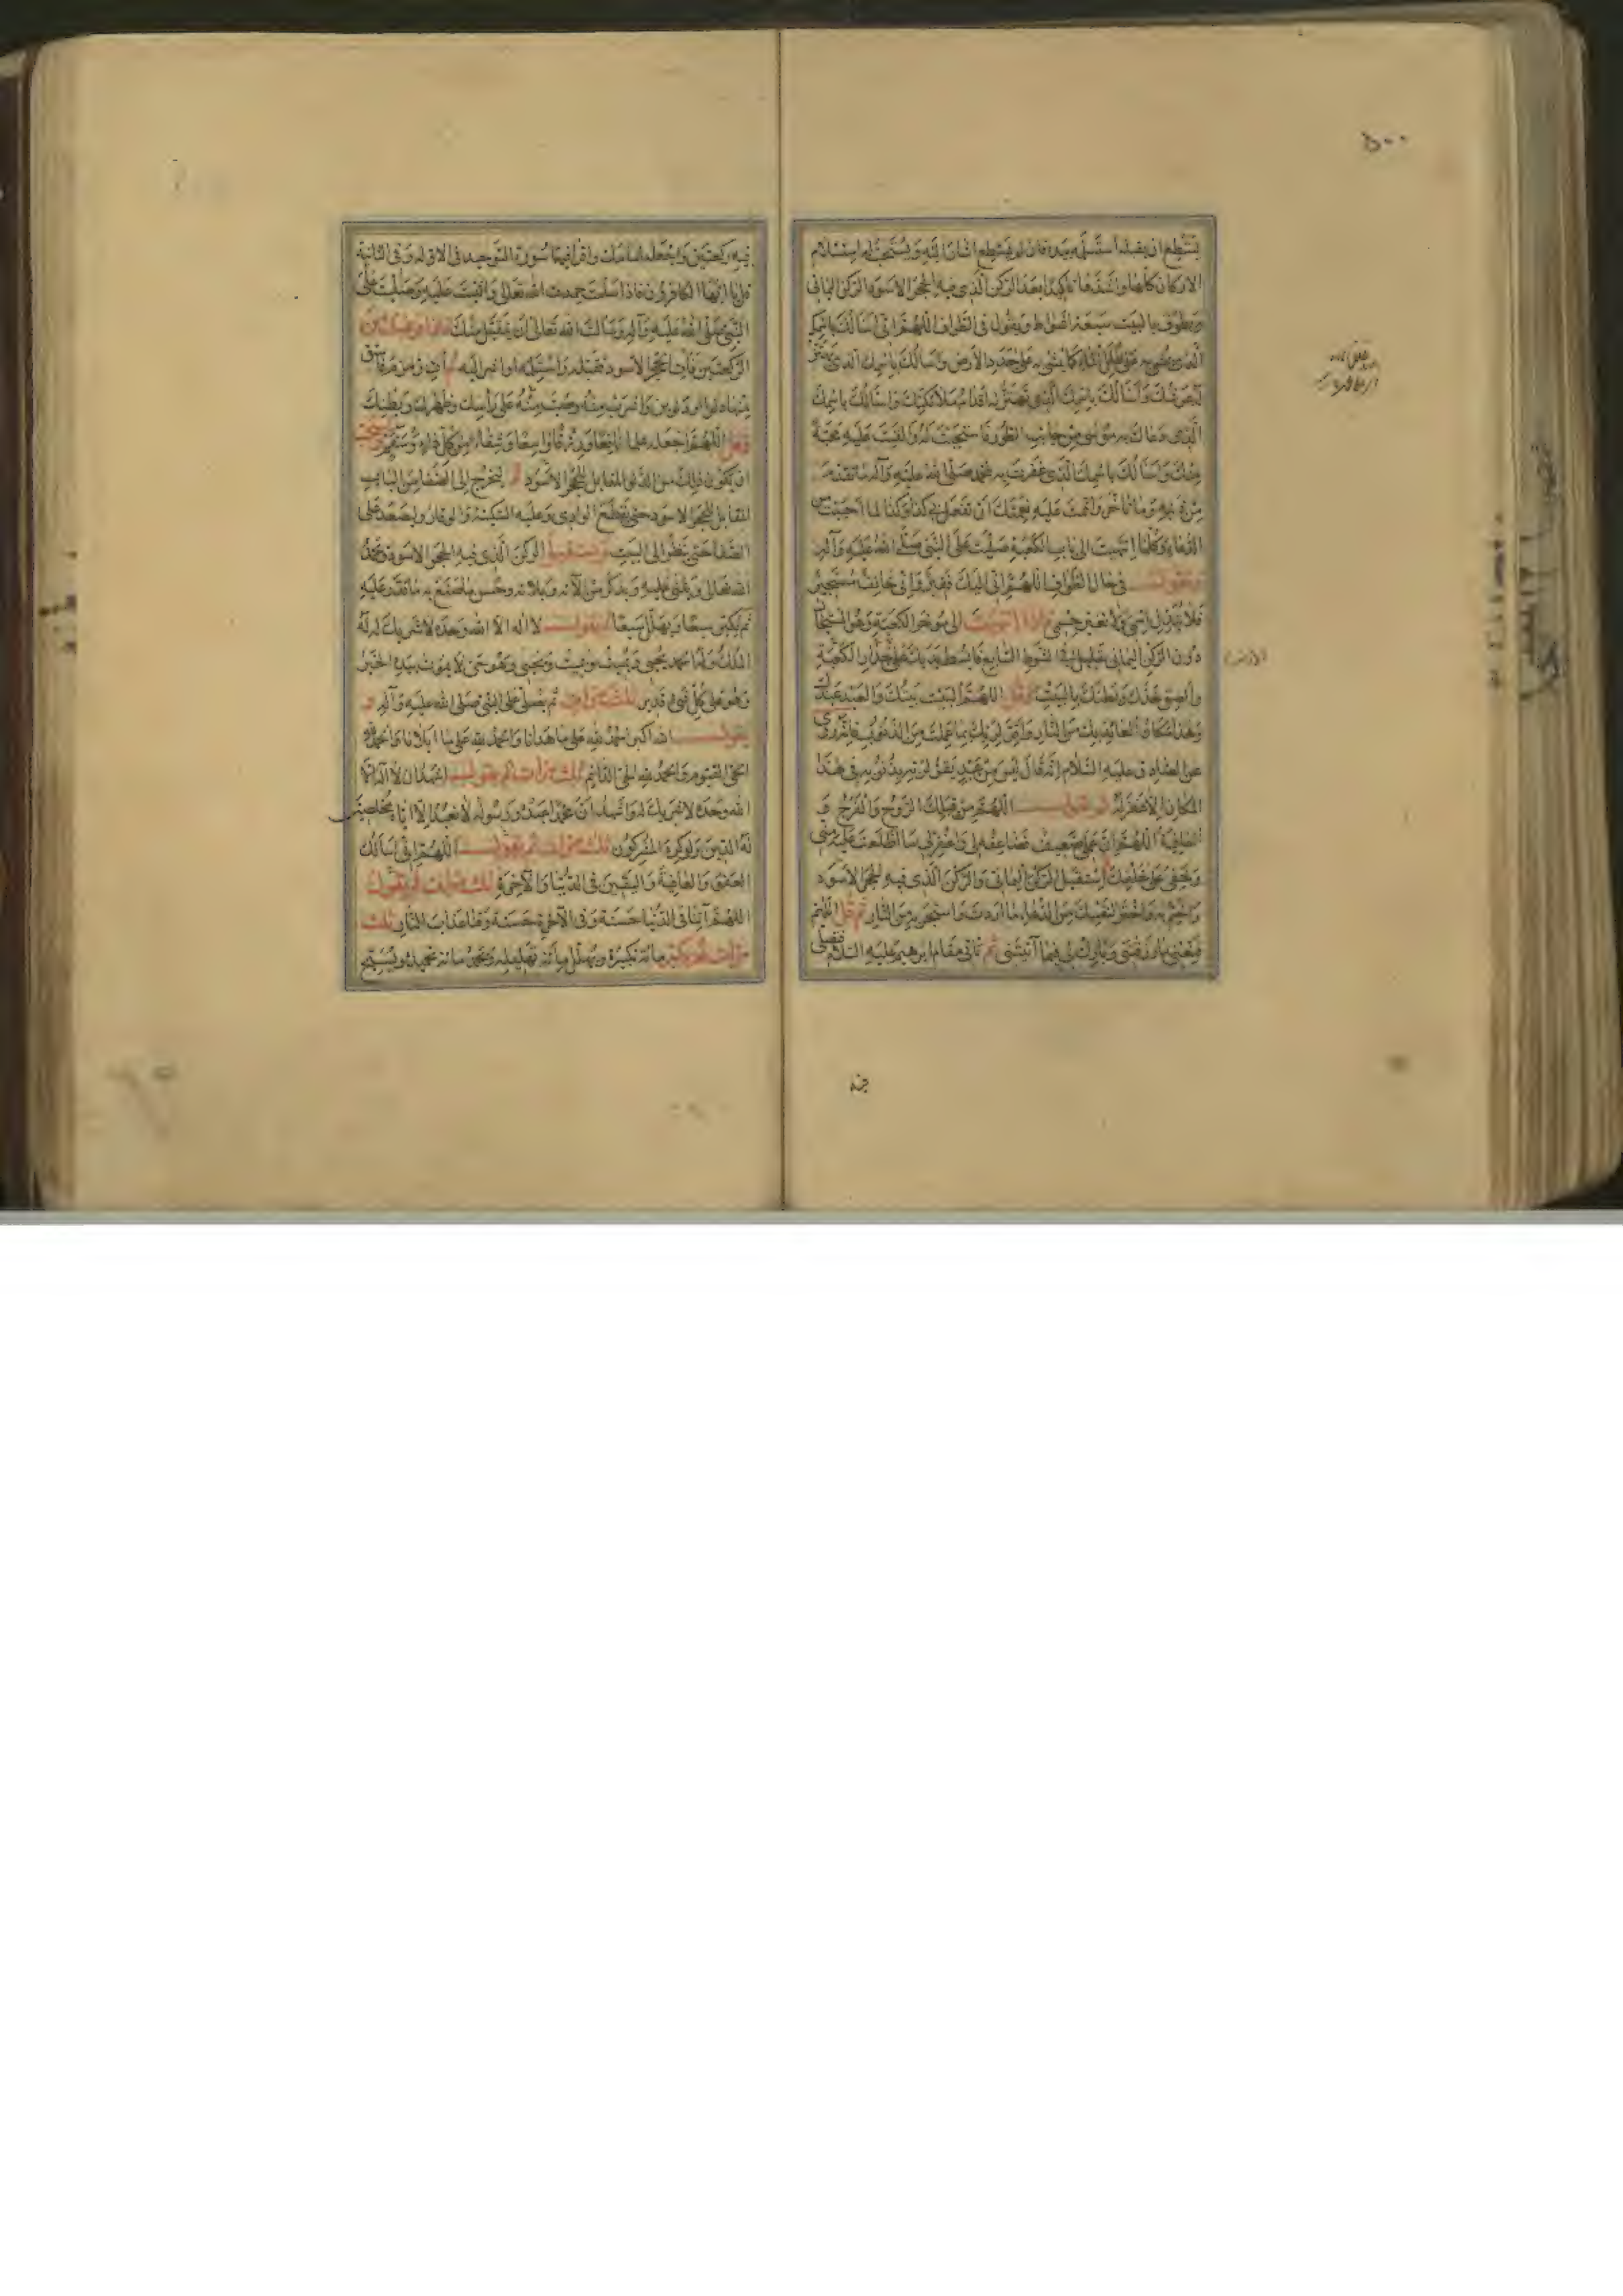 ٥٠٠
يستطع ان يقبله استلمه بيده فان لم يستطع اشار اليه ويستحب له استلام
الاركان كلها واشدها تاكيدا بعد الركن الذي فيه الحجر الاسود الركن اليماني
ويطوف بالبيت سبعة اشواط ويقول في الطواف اللهم اني اسالك باسمك
الذي يمشى به على طلل الماء كما يمشى به على جدد الارض واسالك باسمك الذي يهتز
له عرشك واسالك باسمك الذي تهتز له اقدام ملائكتك واسالك باسمك
الذي دعاك به موسى من جانب الطور فاستجبت له والقيت عليه محبة
منك واسالك باسمك الذي غفرت به لمحمد صلى الله عليه وآله ما تقدم
من ذنبه وما تاخر واتممت عليه نعمتك ان تفعل بي كذا وكذا لما احببت من
الدعاء وكلما انتهيت الى باب الكعبة صليت على النبي صلى الله عليه وآله
وتقول في حال الطواف اللهم اني اليك فقير واني خائف مستجير
فلا تبدل اسمي ولا تغير جسمي فاذا انتهيت الى مؤخر الكعبة وهو المستجار
دون الركن اليماني بقليل في الشوط السابع فابسط يديك على جدار الكعبة
والصق خدك وبطنك بالبيت وقل اللهم البيت بيتك والعبد عبدك
وهذا مكان العائذ بك من النار واقر لربك بما عملت من الذنوب فانه روي
عن الصادق عليه السلام انه قال ليس من عبد يقر لربه بذنوبه في هذا
المكان الا غفر له ثم تقول اللهم من قبلك الروح والفرج و
العافية اللهم ان عملي ضعيف فضاعفه لي واغفر لي ما اطلعت عليه مني
وخفي على خلقك ثم استقبل الركن اليماني والركن الذي فيه الحجر الاسود
واختم به واختر لنفسك من الدعاء ما اردت واستجر به من النار ثم قل اللهم
قنعني بما رزقتني وبارك لي فيما آتيتني ثم تاتي مقام ابرهيم عليه السلام فصلي
فيه ركعتين واجعله امامك واقرا فيهما سورة التوحيد في الاولى وفي الثانية
قل يا ايها الكافرون فاذا سلمت حمدت الله تعالى واثنيت عليه وصليت على
النبي صلى الله عليه وآله وسالت الله تعالى ان يتقبل منك فاذا فرغت من
الركعتين فات الحجر الاسود فقبله واستلمه او اشر اليه ثم ائت زمزم فاستق
منها دلوا او دلوين واشرب منه وصب منه على راسك وظهرك وبطنك
وقل اللهم اجعله علما نافعا ورزقا واسعا وشفاء من كل داء وسقم ويستحب
ان يكون ذلك من الدلو المقابل للحجر الاسود ثم ليخرج الى الصفا من الباب
المقابل للحجر الاسود حتى يقطع الوادي وعليه السكينة والوقار وليصعد على
الصفا حتى ينظر الى البيت ويستقبل الركن الذي فيه الحجر الاسود ويحمد
الله تعالى ويثني عليه ويذكر من آلائه وبلائه وحسن ما صنع به ما قدر عليه
ثم يكبر سبعا ويهلل سبعا ويقول لا اله الا الله وحده لا شريك له له
الملك وله الحمد يحيي ويميت ويميت ويحيي وهو حي لا يموت بيده الخير
وهو على كل شيء قدير ثلث مرات ثم يصلي على النبي صلى الله عليه وآله و
يقول الله اكبر الحمد لله على ما هدانا والحمد لله على ما ابلانا والحمد لله
الحي القيوم والحمد لله الحي الدائم ثلث مرات ثم يقول اشهد ان لا اله الا
الله وحده لا شريك له واشهد ان محمدا عبده ورسوله لا نعبد الا اياه مخلصين
له الدين ولو كره المشركون ثلث مرات ثم يقول اللهم اني اسالك
العفو والعافية واليقين في الدنيا والآخرة ثلث مرات ثم يقول
اللهم آتنا في الدنيا حسنة وفي الآخرة حسنة وقنا عذاب النار ثلث
مرات ثم يكبر مائة تكبيرة ويهلل مائة تهليلة ويحمد مائة تحميدة ويسبح